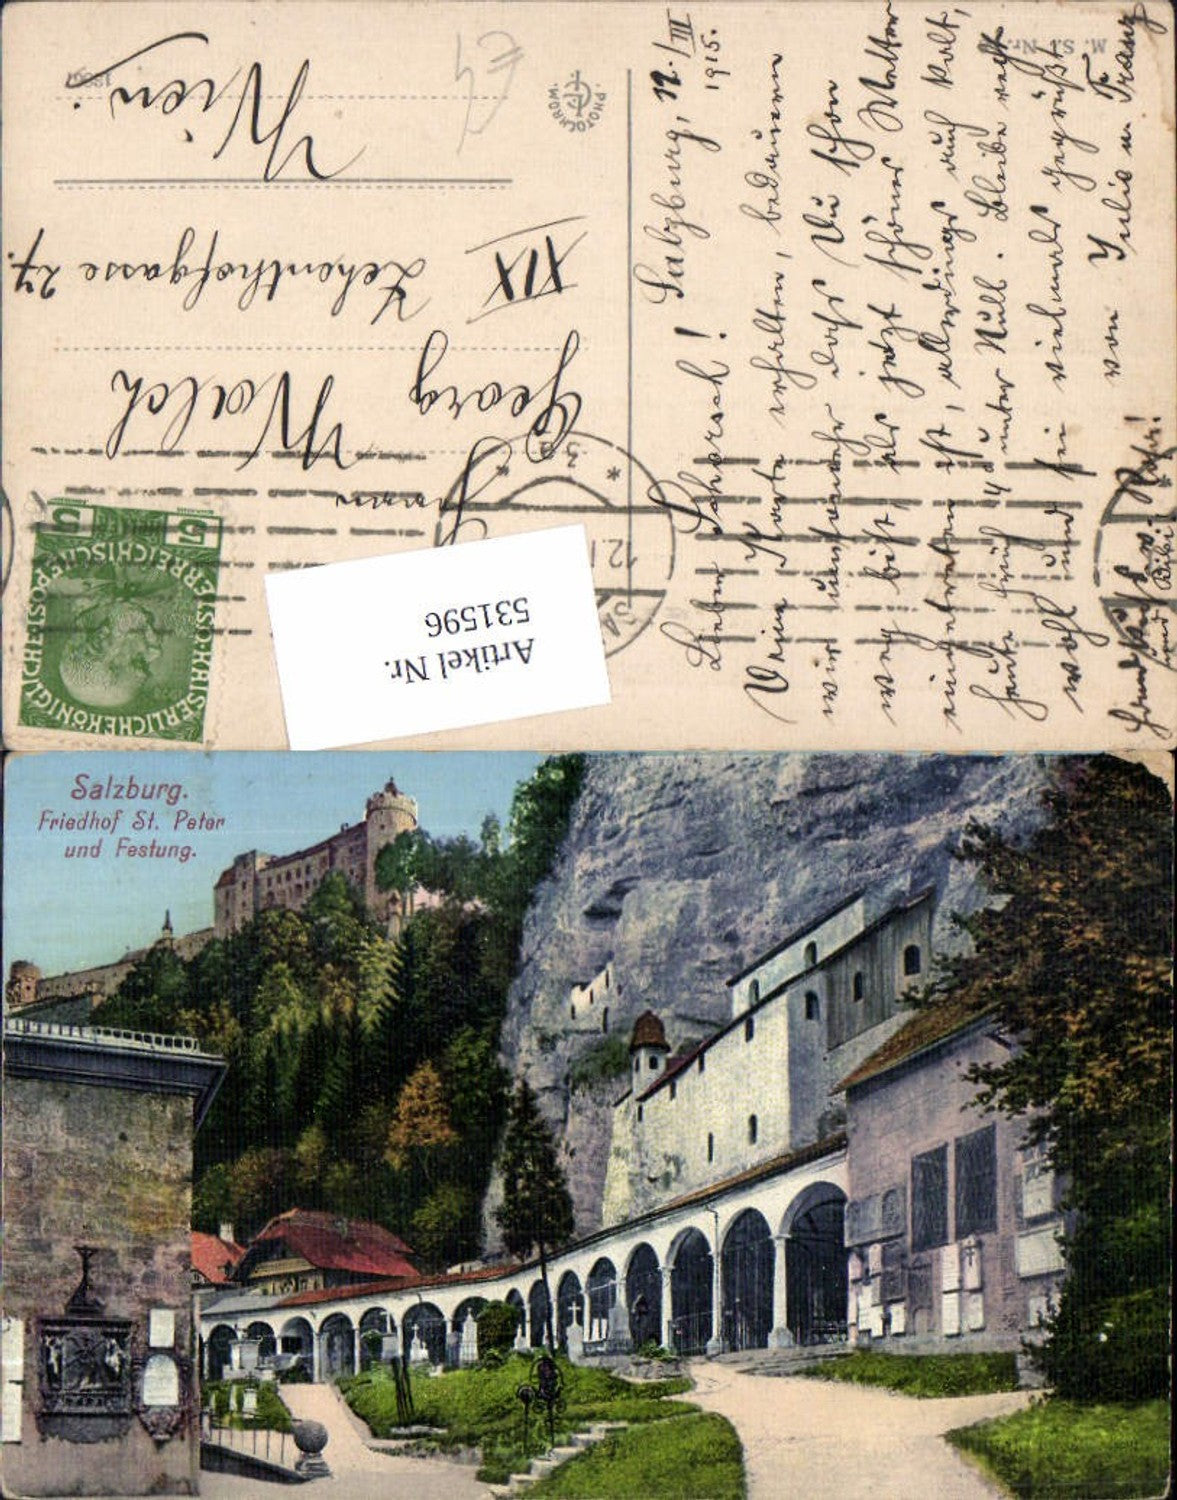 Salzburg, 12./III
1915.
Lieber Schorsch!
Deine Karte erhalten, bedauern
wir umsomehr daß Du schon
weg bist, als jetzt schönes Wetter
eingetreten ist, allerdings auch kalt,
heute früh 4° unter Null. Bleibe recht
wohl und sei vielmals gegrüßt
von Julie u. Franz
und Bibi!
M. S. Nr.
PHOTOCHROM
Herrn
Georg Walch
XIX Zehenthofgasse 27.
Wien
5 HELLER 5
KAISERLICHEKÖNIGLICHE ÖSTERREICHISCHE POST
Artikel Nr.
531596
Salzburg.
Friedhof St. Peter
und Festung.